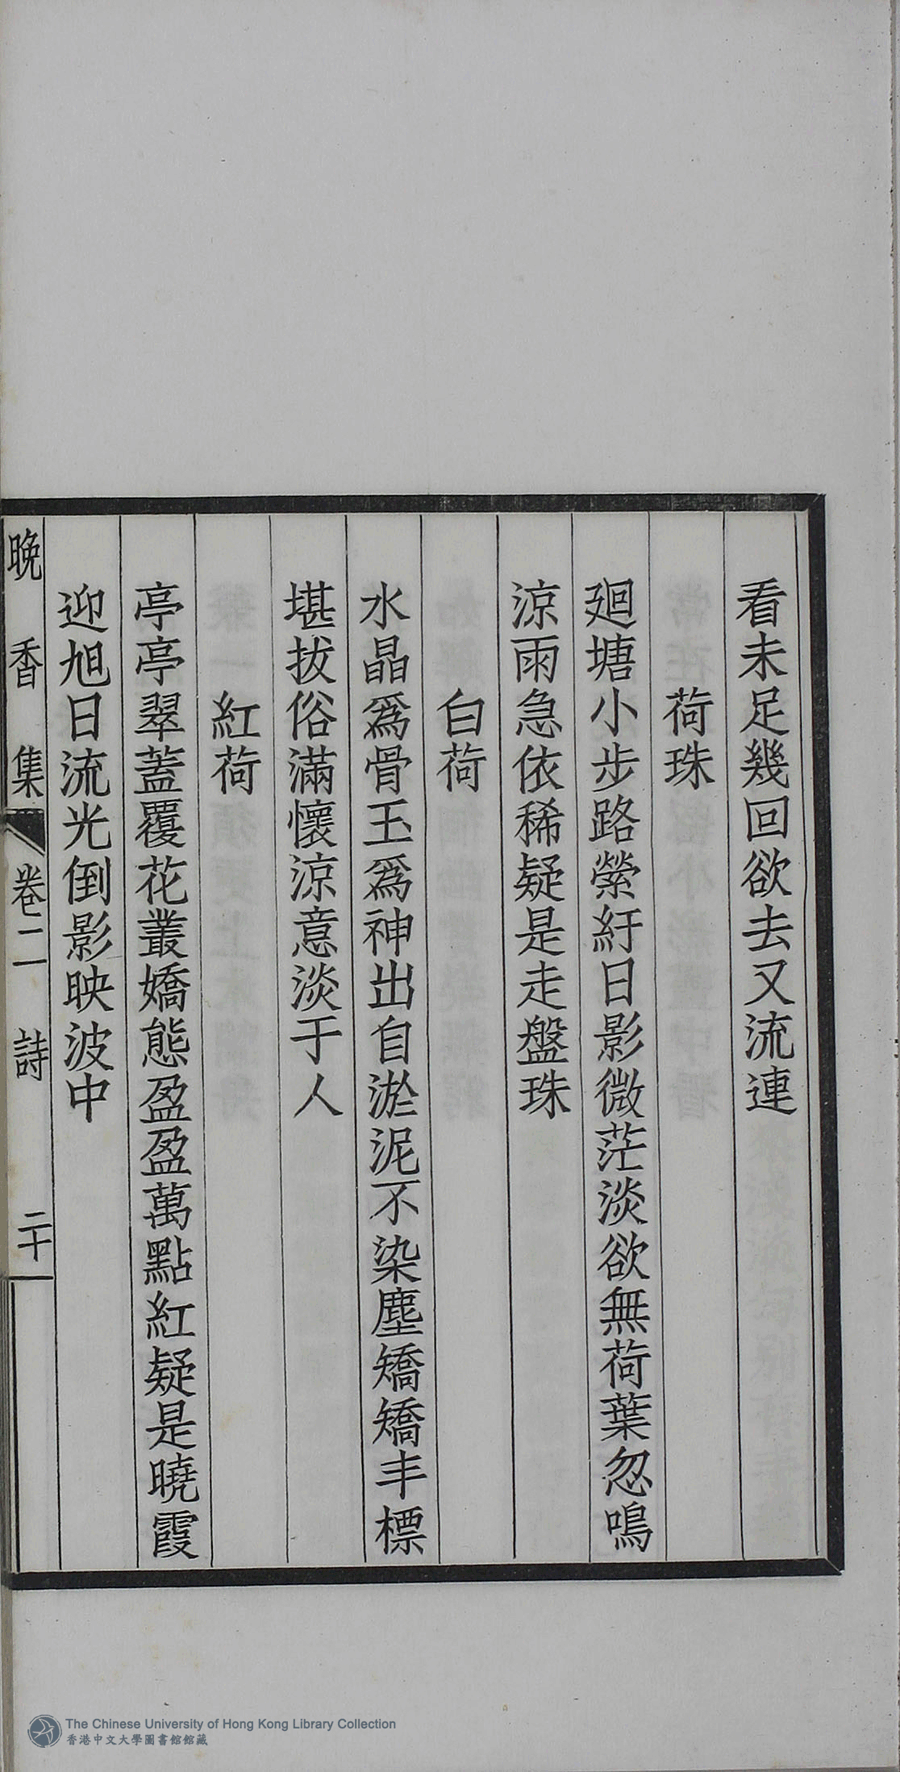 看未足幾回欲去又流連
荷珠
廻塘小步路縈紆日影微茫淡欲無荷葉忽鳴
涼雨急依稀疑是走盤珠
白荷
水晶爲骨玉爲神出自淤泥不染塵矯矯丰標
堪拔俗滿懷涼意淡于人
紅荷
亭亭翠蓋覆花叢嬌態盈盈萬點紅疑是曉霞
迎旭日流光倒影映波中
晚香集 卷二 詩 二十
The Chinese University of Hong Kong Library Collection
香港中文大學圖書館館藏